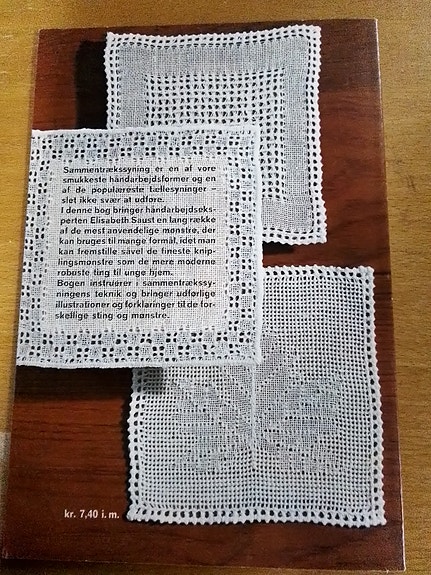 Sammentrækssyning er en af vore
smukkeste håndarbejdsformer og en
af de populæreste tællesyninger –
slet ikke svær at udføre.
I denne bog bringer håndarbejdseks-
perten Elisabeth Saust en lang række
af de mest anvendelige mønstre, der
kan bruges til mange formål, idet man
kan fremstille såvel de fineste knip-
lingsmønstre som de mere moderne
robuste ting til unge hjem.
Bogen instruerer i sammentrækssy-
ningens teknik og bringer udførlige
illustrationer og forklaringer til de for-
skellige sting og mønstre.
kr. 7,40 i. m.